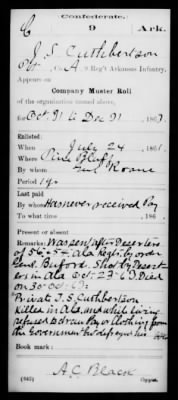 Confederate.
C 9 Ark.
J. S. Cuthbertson
Pvt, Co. A, 9 Reg't Arkansas Infantry.
Appears on
Company Muster Roll
of the organization named above,
for Oct 31 to Dec 31, 1863.
Enlisted:
When July 24, 1861.
Where Pine Bluff
By whom Roane
Period 1 yr
Last paid:
By whom Has never received Pay
To what time , 186 .
Present or absent
Remarks: Was sent after Deserters
of 56 & 57 Ala Regts by order
Genl Buford. Shot by Desert
ers in Ala Oct 23-63 Died
on 30 Oct. 63:
Privat J. S. Cuthbertson
Killed in Ala. and while living
refused to draw Pay or clothing from
the Government but
Book mark:
A. C. Black
(642) Copyist.